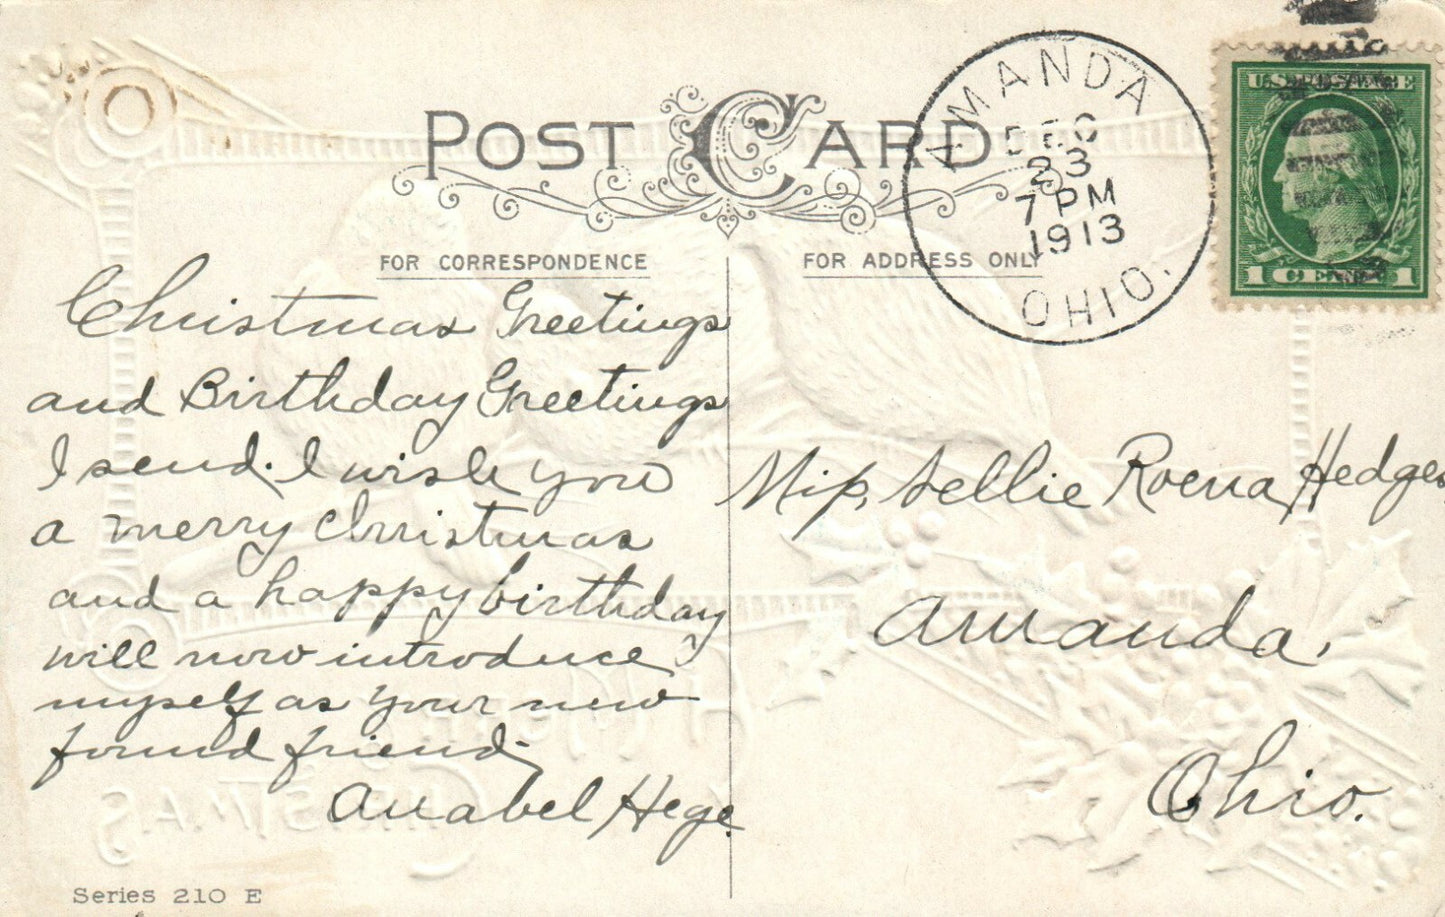 POST CARD
AMANDA
DEC
23
7 PM
1913
OHIO.
U.S. POSTAGE
1 CENT 1
FOR CORRESPONDENCE
FOR ADDRESS ONLY
Christmas Greetings
and Birthday Greetings
I send. I wish you
a merry Christmas
and a happy birthday
will now introduce
myself as your new
found friend,
Anabel Hege.
Miss, Lellie Roena, Hedges
Amanda,
Ohio.
Series 210 E